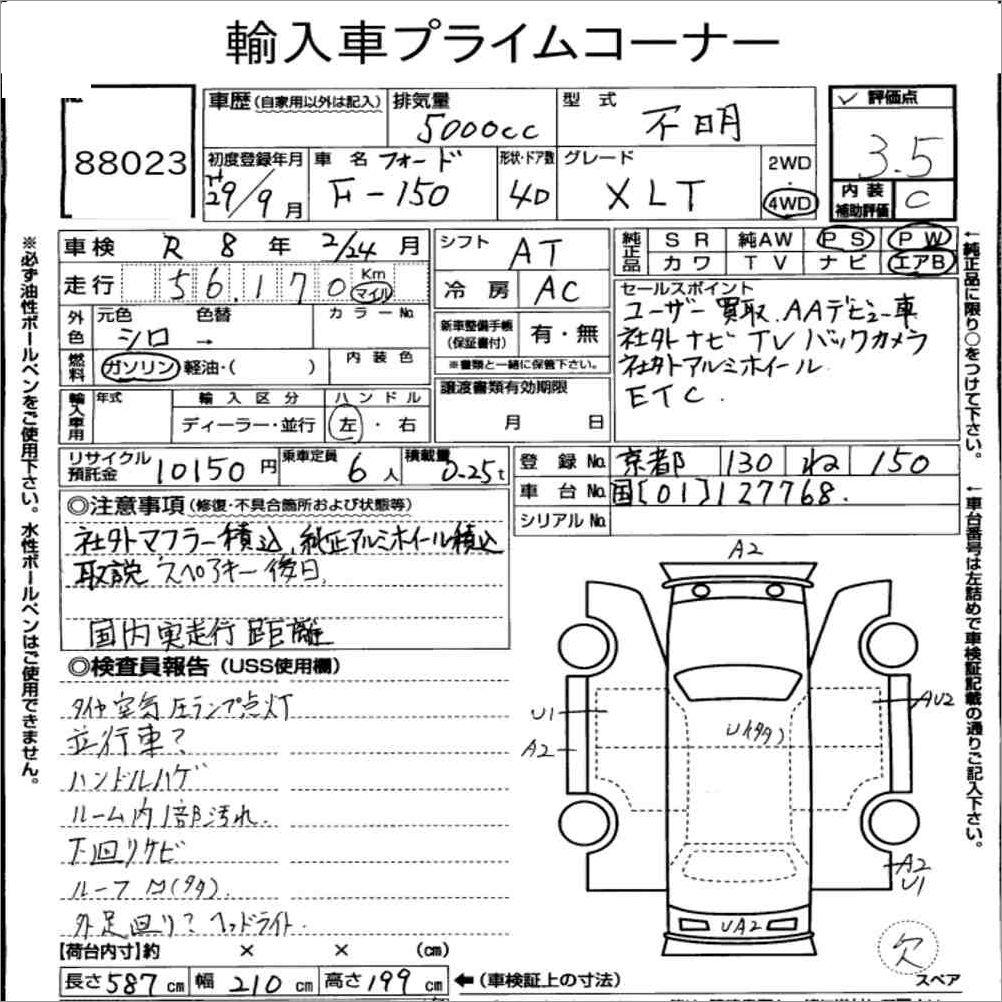 輸入車プライムコーナー
88023
車歴(自家用以外は記入) 排気量 5000cc 型式 不明
✓ 評価点 3.5
初度登録年月 H29/9月 車名 フォード F-150 形状・ドア数 4D グレード XLT 2WD・4WD
内装補助評価 C
車検 R 8年 2/24月 シフト AT
純正品 SR 純AW PS PW カワ TV ナビ エアB
走行 56,170 Km マイル 冷房 AC
セールスポイント
ユーザー買取 AAデビュー車
社外ナビ TV バックカメラ
社外アルミホイール
ETC.
外色 元色 シロ → 色替 カラーNo.
新車整備手帳(保証書付) 有・無
※書類と一緒に保管下さい。
燃料 ガソリン 軽油・( ) 内装色
譲渡書類有効期限 月 日
輸入車用 年式 輸入区分 ディーラー・並行 ハンドル 左・右
リサイクル預託金 10150円 乗車定員 6人 積載量 0.25t
登録No. 京都 130 ね 150
車台No. 国[01]127768.
シリアルNo.
◎注意事項(修復・不具合箇所および状態等)
社外マフラー積込、純正アルミホイール積込
取説 スペアキー後日
国内実走行距離
◎検査員報告(USS使用欄)
タイヤ空気圧ランプ点灯
並行車?
ハンドルハゲ
ルーム内1部汚れ.
下回りサビ
ルーフ凹(タタ).
外足回り? ヘッドライト.
A2
U1
A2
U(タタ)
AU2
A2
U1
UA2
欠
スペア
【荷台内寸】約 × × (cm)
長さ587cm 幅210cm 高さ199cm ←(車検証上の寸法)
※必ず油性ボールペンをご使用下さい。水性ボールペンはご使用できません。
←純正品に限り○をつけて下さい。
←車台番号は左詰めで車検証記載の通りご記入下さい。